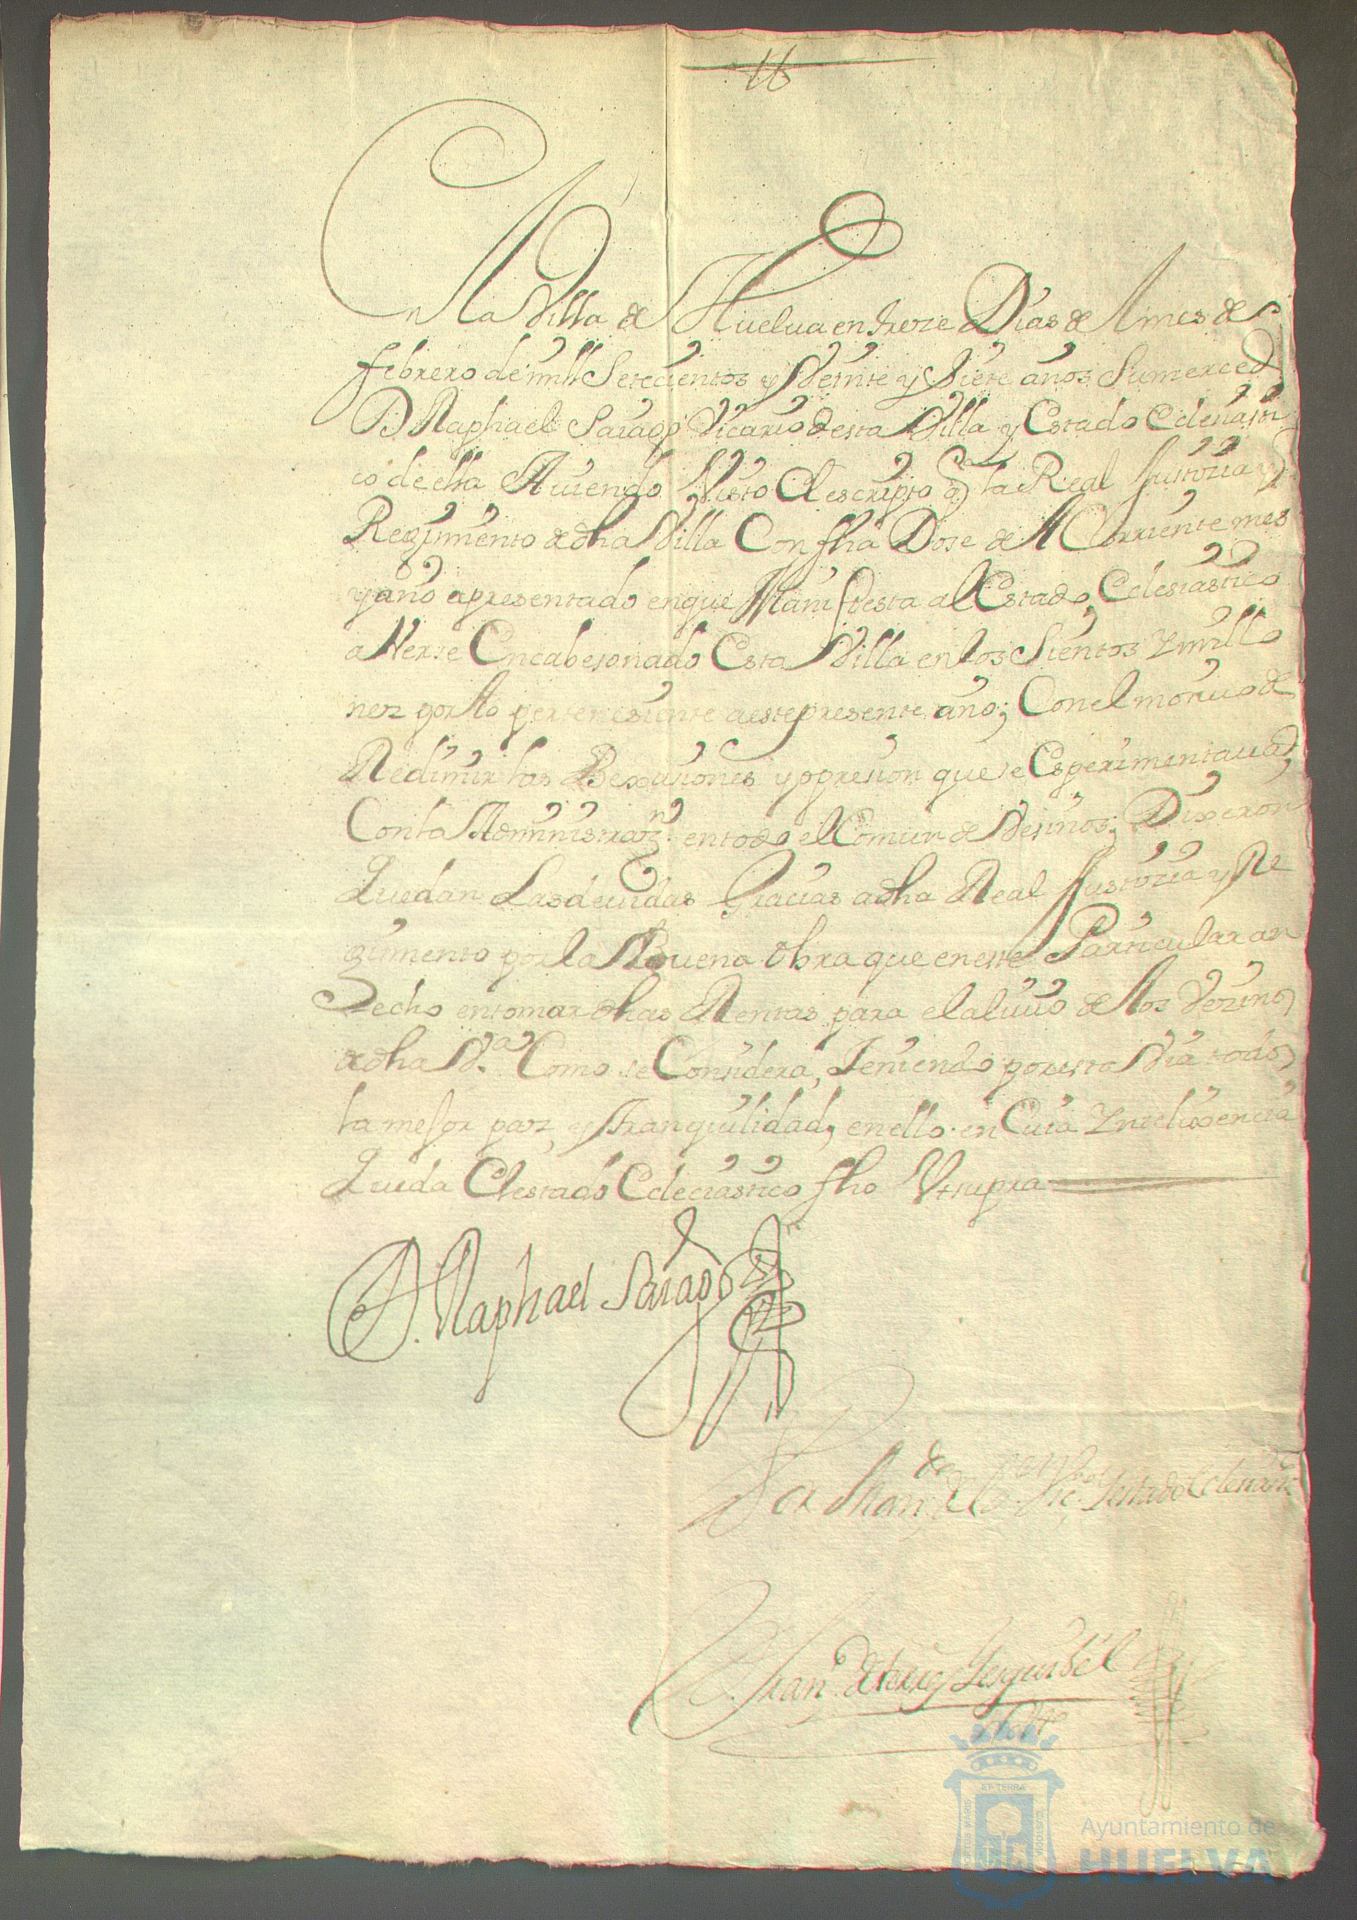 16
En la Villa de Huelua en treze Dias del mes de
febrero de mill Setecientos y Veinte y Siete años Sumerced
D Raphael Sarao, Vicario desta Villa y Estado Eclesiasti
co de ella Auiendo Visto El escripto q la Real Justizia y
Regimiento de dha Villa Con fha Dose del Corriente mes
y año a presentado en que Manifiesta al Estado Eclesiastico
aVerse Encabesonado Esta Villa en los Sientos y mill
nes por lo pertenesiente a este presente año; Con el motiuo de
Redimir las Bexasiones y opresion que se Esperimentaua
Con la Administraz.n en todo el Comun de Vesinos; Dixeron
Quedan Las deuidas Gracias a dha Real Justizia y Re
gimiento por la Buena Obra que en este Particular an
Hecho en tomar dhas Rentas para el aliuio de los Vezinos
de dha V.a Como se Considera, Teniendo por esta Via todos
la mejor paz y tranquilidad, en ello. en Cuia Yntelixencia
Queda El estado Ecleciastico fho Vt supra
D. Raphael Sarao
Por Man.do del S.or Vic.o y estado Eclesiastic
Fran.co de
nott.o
Ayuntamiento de
HUELVA